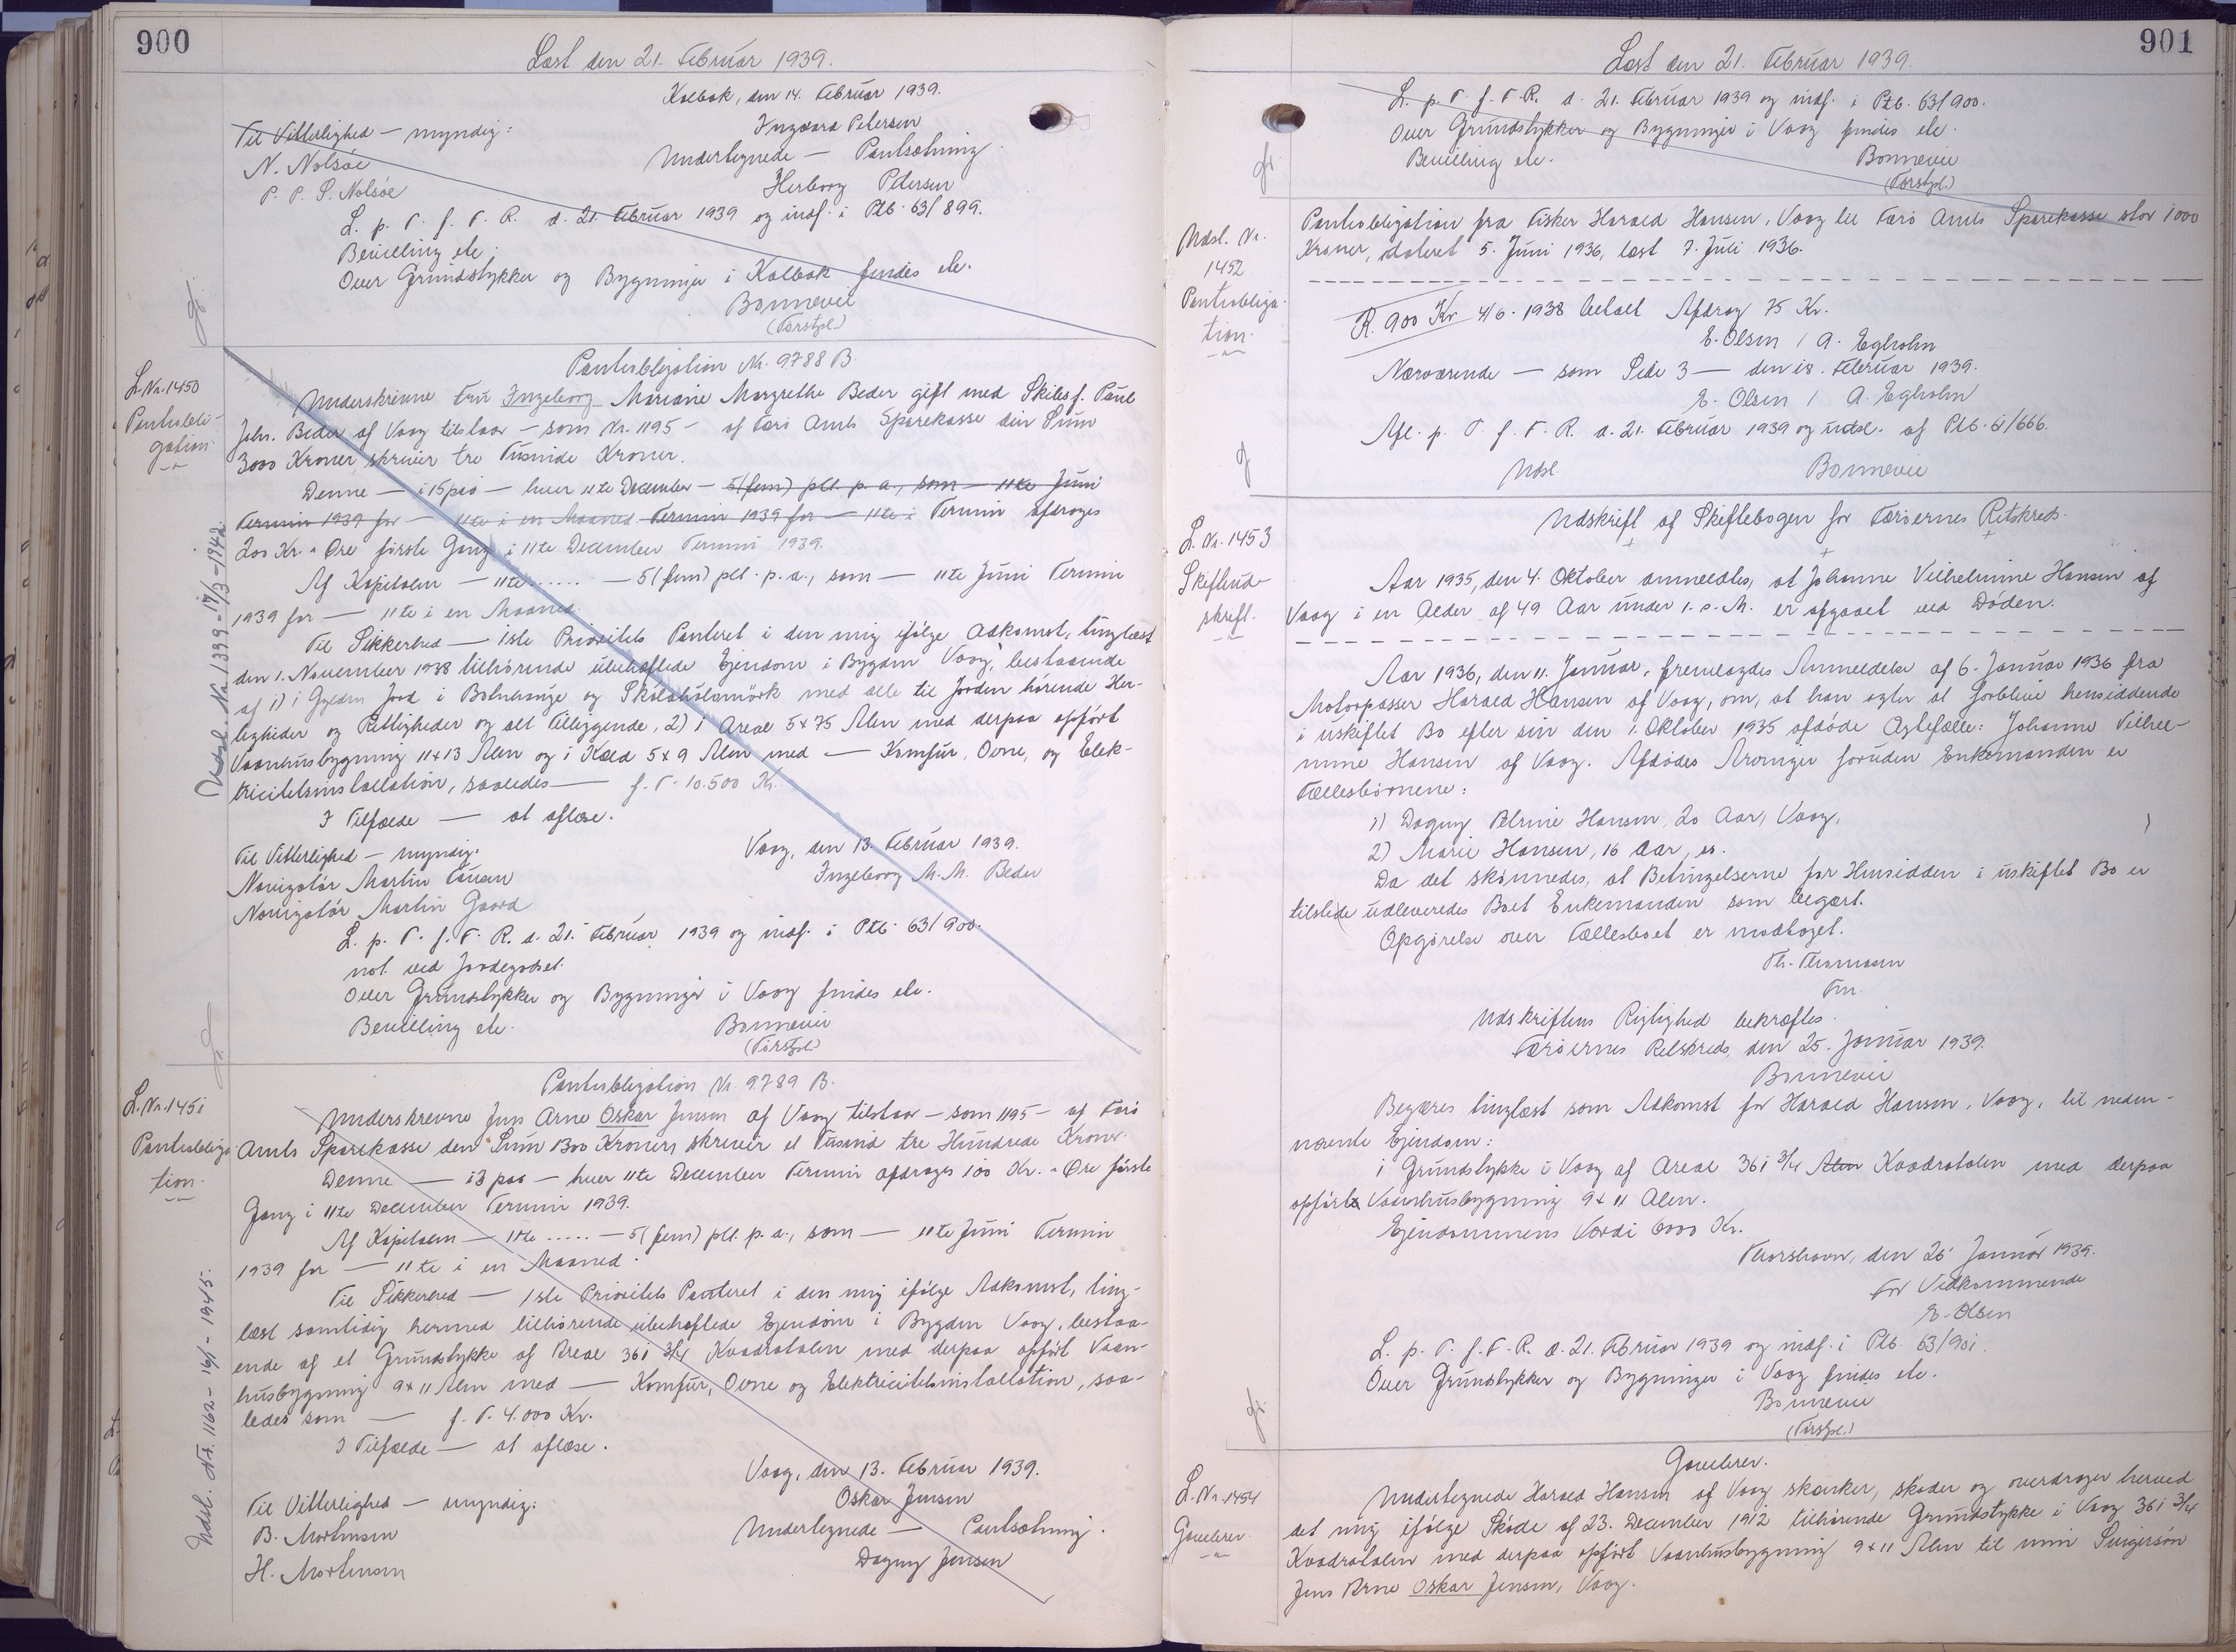 900
Læst den 21. Februar 1939.
Kolbak, den 14. Februar 1939.
Til Vitterlighed — myndig:
Ingvard Petersen
N. Nolsøe
Undertegnede — Pantsætning.
P. P. S. Nolsøe
Herborg Petersen
L. p. T. f. F. R. d. 21. Februar 1939 og indf. i Ptb. 63/899.
Bevilling etc.
Over Grundstykker og Bygninger i Kolbak findes etc.
Bonnevie
(Forstpl.)
Pantobligation Nr. 9788 B.
L. Nr. 1450
Pantobli-
gation
Underskrevne Fru Ingeborg Mariane Margrethe Beder gift med Skibsf. Paul
Johs. Beder af Vaag tilstaar — som Nr. 1195 — af Færø Amts Sparekasse den Sum
3000 Kroner, skriver tre Tusinde Kroner.
Denne — i 15 paa — hver 11te December — 5 (fem) pCt. p. a., som — 11te Juni
Termin 1939 for — 11te i en Maaned Termin 1939 for — 11te i Termin afdrages
200 Kr. " Øre første Gang i 11te December Termin 1939.
Af Kapitalen — 11te ...... — 5 (fem) pCt. p. a., som — 11te Juni Termin
1939 for — 11te i en Maaned.
Til Sikkerhed — 1ste Prioritets Panteret i den mig ifølge Adkomst, tinglæst
den 1. November 1938 tilhørende ubehæftede Ejendom i Bygden Vaag, bestaaende
af 1) 1 Gylden Jord i Botnhauge og Skálahúsamørk med alle til Jorden hørende Her-
ligheder og Rettigheder og alt Tilliggende, 2) i Areal 5 x 75 Alen med derpaa opført
Vaanhusbygning 11 x 13 Alen og i Kæld 5 x 9 Alen med — Komfur, Ovne, og Elek-
tricitetsinstallation, saaledes — f. T. 10.500 Kr.
I Tilfælde — at aflæse.
Til Vitterlighed — myndig:
Vaag, den 13. Februar 1939.
Navigatør Martin
Ingeborg M. M. Beder
Navigatør Martin Gaard
L. p. T. f. F. R. d. 21. Februar 1939 og indf. i Ptb. 63/900.
not. ved Jordegodset.
Over Grundstykker og Bygninger i Vaag findes etc.
Bevilling etc.
Bonnevie
(Forstpl.)
Udsl. Nr. 1399 - 17/3 - 1942
Pantobligation Nr. 9789 B.
L. Nr. 1451
Pantobliga-
tion.
Underskrevne Jens Arne Oskar Jensen af Vaag tilstaar — som 1195 — af Færø
Amts Sparekasse den Sum 1300 Kroner, skriver et Tusind tre Hundrede Kroner.
Denne — 13 paa — hver 11te December Termin afdrages 100 Kr. " Øre første
Gang i 11te December Termin 1939.
Af Kapitalen — 11te ..... — 5 (fem) pCt. p. a., som — 11te Juni Termin
1939 for — 11te i en Maaned.
Til Sikkerhed — 1ste Prioritets Panteret i den mig ifølge Adkomst, ting-
læst samtidig hermed tilhørende ubehæftede Ejendom i Bygden Vaag, bestaa-
ende af et Grundstykke af Areal 361 3/4 Kvadratalen med derpaa opført Vaan-
husbygning 9 x 11 Alen med — Komfur, Ovne og Elektricitetsinstallation, saa-
ledes som — f. T. 4.000 Kr.
I Tilfælde — at aflæse.
Vaag, den 13. Februar 1939.
Oskar Jensen
Til Vitterlighed — myndig:
Undertegnede — Pantsætning.
B. Mortensen
Dagny Jensen
H. Mortensen
Udsl. Nr. 1162 - 16/1 - 1945.
901
Læst den 21. Februar 1939.
L. p. T. f. F. R. d. 21. Februar 1939 og indf. i Ptb. 63/900.
Over Grundstykker og Bygninger i Vaag findes etc.
Bevilling etc.
Bonnevie
(Forstpl.)
Udsl. Nr.
1452
Pantobliga-
tion.
Pantobligation fra Fisker Harald Hansen, Vaag til Færø Amts Sparekasse stor 1000
Kroner, dateret 5. Juni 1936, læst 7. Juli 1936.
R. 900 Kr 4/6. 1938 betalt Afdrag 75 Kr.
E. Olsen / A. Egholm
Nærværende — som Side 3 — den 18. Februar 1939.
E. Olsen / A. Egholm
Afl. p. T. f. F. R. d. 21. Februar 1939 og udsl. af Ptb. 61/666.
Udsl.
Bonnevie
Udskrift af Skiftebogen for Færøernes Retskreds.
L. Nr. 1453
Skifteud-
skrift.
Aar 1935, den 4. Oktober anmeldtes, at Johanne Vilhelmine Hansen af
Vaag i en Alder af 49 Aar under 1. s. M. er afgaaet ved Døden.
Aar 1936, den 11. Januar, fremlagdes Anmeldelse af 6. Januar 1936 fra
Motorpasser Harald Hansen af Vaag, om, at han agter at forblive hensiddende
i uskiftet Bo efter sin den 1. Oktober 1935 afdøde Ægtefælle: Johanne Vilhel-
mine Hansen af Vaag. Afdødes Arvinger foruden Enkemanden er
Fællesbørnene:
1) Dagny Petrine Hansen, 20 Aar, Vaag,
2) Marie Hansen, 16 Aar, ss.
Da det skønnedes, at Betingelserne for Hensidden i uskiftet Bo er
tilstede udleveredes Boet Enkemanden som begært.
Opgørelse over Fællesboet er modtaget.
Th. Thomassen
Fm.
Udskriftens Rigtighed bekræftes.
Færøernes Retskreds, den 25. Januar 1939.
Bonnevie
Begæres tinglæst som Adkomst for Harald Hansen, Vaag, til neden-
nævnte Ejendom:
1 Grundstykke i Vaag af Areal 361 3/4 Alen Kvadratalen med derpaa
opført Vaanhusbygning 9 x 11 Alen.
Ejendommens Værdi 6000 Kr.
Thorshavn, den 26 Januar 1939.
For Vedkommende
E. Olsen
L. p. T. f. F. R. d. 21. Februar 1939 og indf. i Ptb. 63/901.
Over Grundstykker og Bygninger i Vaag findes etc.
Bonnevie
(Forstpl.)
Gavebrev.
L. Nr. 1454
Gavebrev.
Undertegnede Harald Hansen af Vaag skænker, skøder og overdrager herved
det mig ifølge Skøde af 23. December 1912 tilhørende Grundstykke i Vaag 361 3/4
Kvadratalen med derpaa opført Vaanhusbygning 9 x 11 Alen til min Svigersøn
Jens Arne Oskar Jensen, Vaag.